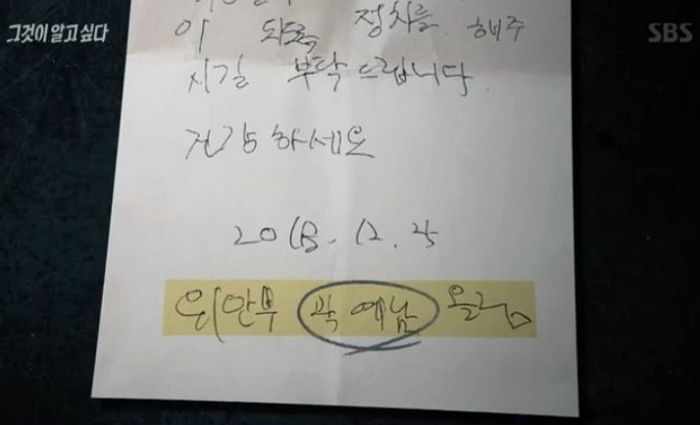 그것이 알고 싶다
SBS
이 되도록 정치를 해주
시길 부탁드립니다
건강하세요
2018. 12. 25
위안부 곽예남 올림